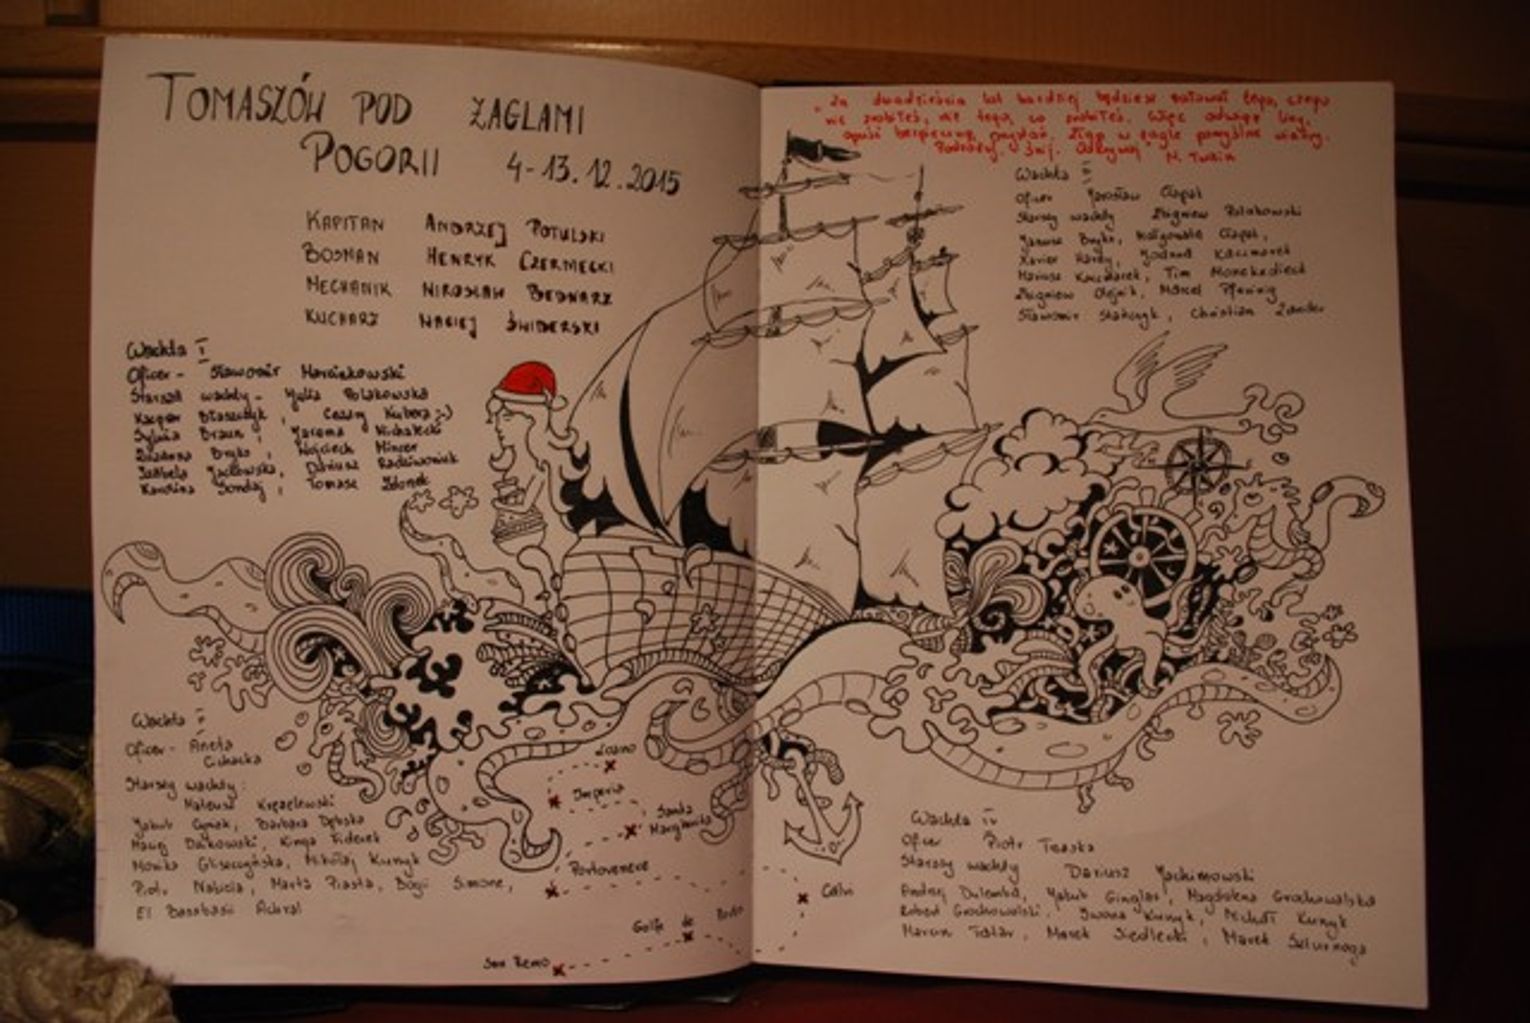 TOMASZÓW POD ŻAGLAMI
POGORII 4-13.12.2015
KAPITAN ANDRZEJ POTULSKI
BOSMAN HENRYK CZERNIECKI
MECHANIK MIROSŁAW BEDNARZ
KUCHARZ MACIEJ ŚWIDERSKI
Wachta I
Oficer - Sławomir Marciakowski
Starszy wachty - Julia Polakowska
Kacper Błaszczyk, Cezary Kubera ;-)
Sylwia Braun, Jarema Michalecki
Zuzanna Bryks, Wojciech Mincer
Izabela Jacłowska, Dariusz Radziwoniuk
Karolina Gondaj, Tomasz Zdonek
Wachta II
Oficer - Aneta
Cichacka
Starszy wachty:
Mateusz Krężelewski
Jakub Cyniak, Barbara Dębska
Maciej Dutkowski, Kinga Fiderek
Monika Gliszczyńska, Mikołaj Kunyk
Piotr Nalicia, Marta Piasta, Bögji Simone,
El Bassbasii Achraf
Loano
Imperia
Santa
Margherita
Portovenere
Calvi
Golfe de
San Remo
„Za dwadzieścia lat bardziej będziesz żałował tego, czego
nie zrobiłeś, niż tego, co zrobiłeś. Więc odwiąż liny,
opuść bezpieczną przystań. Złap w żagle pomyślne wiatry.
Podróżuj. Śnij. Odkrywaj" M. Twain
Wachta III
Oficer Jarosław Ciapał
Starszy wachty Zbigniew Polakowski
Janusz Bryks, Małgorzata Ciapał,
Xavier Hardy, Kaczmarek
Mariusz Kaczmarek, Tim
Zbigniew Olejnik, Marcel Pfennig
Sławomir Stańczyk, Christian Zander
Wachta IV
Oficer Piotr Traska
Starszy wachty Dariusz Jachimowski
Andrzej Dulemba, Jakub Ginglas, Magdalena Grochowalska
Robert Grochowalski, Iwona Kunyk, Michał Kunyk
Marcin Tatar, Marek Siedlecki, Marek